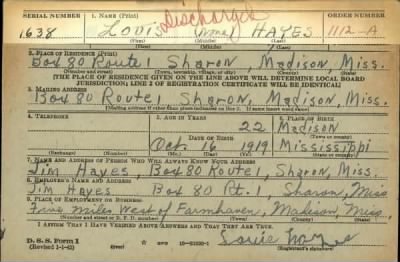 SERIAL NUMBER 1. NAME (Print) ORDER NUMBER
Discharged
1638 LOUIS (NMN) HAYES 1112-A
(First) (Middle) (Last)
2. PLACE OF RESIDENCE (Print)
Box 80 Route 1 Sharon, Madison, Miss.
(Number and street) (Town, township, village, or city) (County) (State)
[THE PLACE OF RESIDENCE GIVEN ON THE LINE ABOVE WILL DETERMINE LOCAL BOARD
JURISDICTION; LINE 2 OF REGISTRATION CERTIFICATE WILL BE IDENTICAL]
3. MAILING ADDRESS
Box 80 Route 1, Sharon, Madison, Miss.
[Mailing address if other than place indicated on line 2. If same insert word same]
4. TELEPHONE 5. AGE IN YEARS 6. PLACE OF BIRTH
22 Madison
DATE OF BIRTH (Town or county)
Oct. 16 1919 Mississippi
(Exchange) (Number) (Mo.) (Day) (Yr.) (State or country)
7. NAME AND ADDRESS OF PERSON WHO WILL ALWAYS KNOW YOUR ADDRESS
Jim Hayes, Box 80 Route 1, Sharon, Miss.
8. EMPLOYER'S NAME AND ADDRESS
Jim Hayes Box 80 Rt. 1 Sharon, Miss
9. PLACE OF EMPLOYMENT OR BUSINESS
Five Miles West of Farmhaven, Madison, Miss.
(Number and street or R. F. D. number) (Town) (County) (State)
I AFFIRM THAT I HAVE VERIFIED ABOVE ANSWERS AND THAT THEY ARE TRUE.
D. S. S. Form 1
(Revised 1-1-42) (over)
(Registrant's signature)